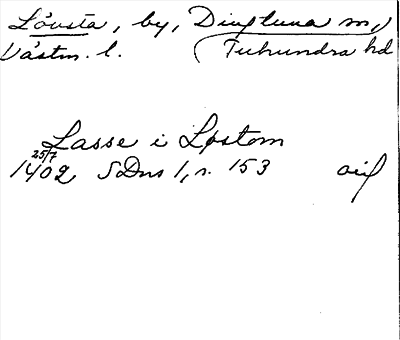 Lövsta, by, Dingtuna sn,
Västm. l. Tuhundra hd
Lasse i Løstom
25/7
1402 SDns 1, s. 153